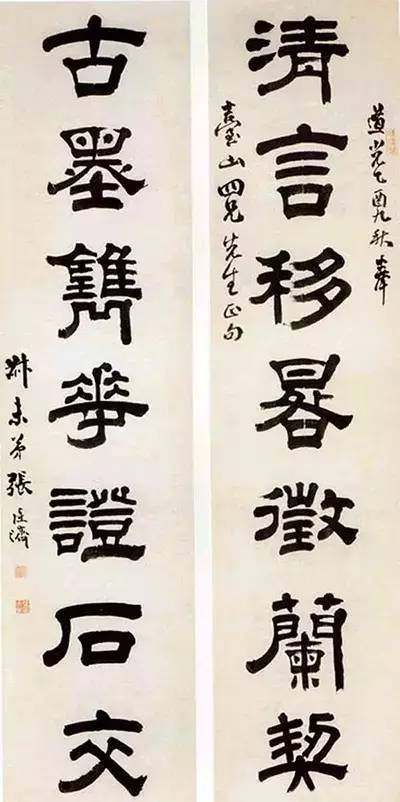 道光乙酉九秋奉
清言移晷徵蘭契
山四兄先生正句
古墨雋華證石交
叔未弟張廷濟